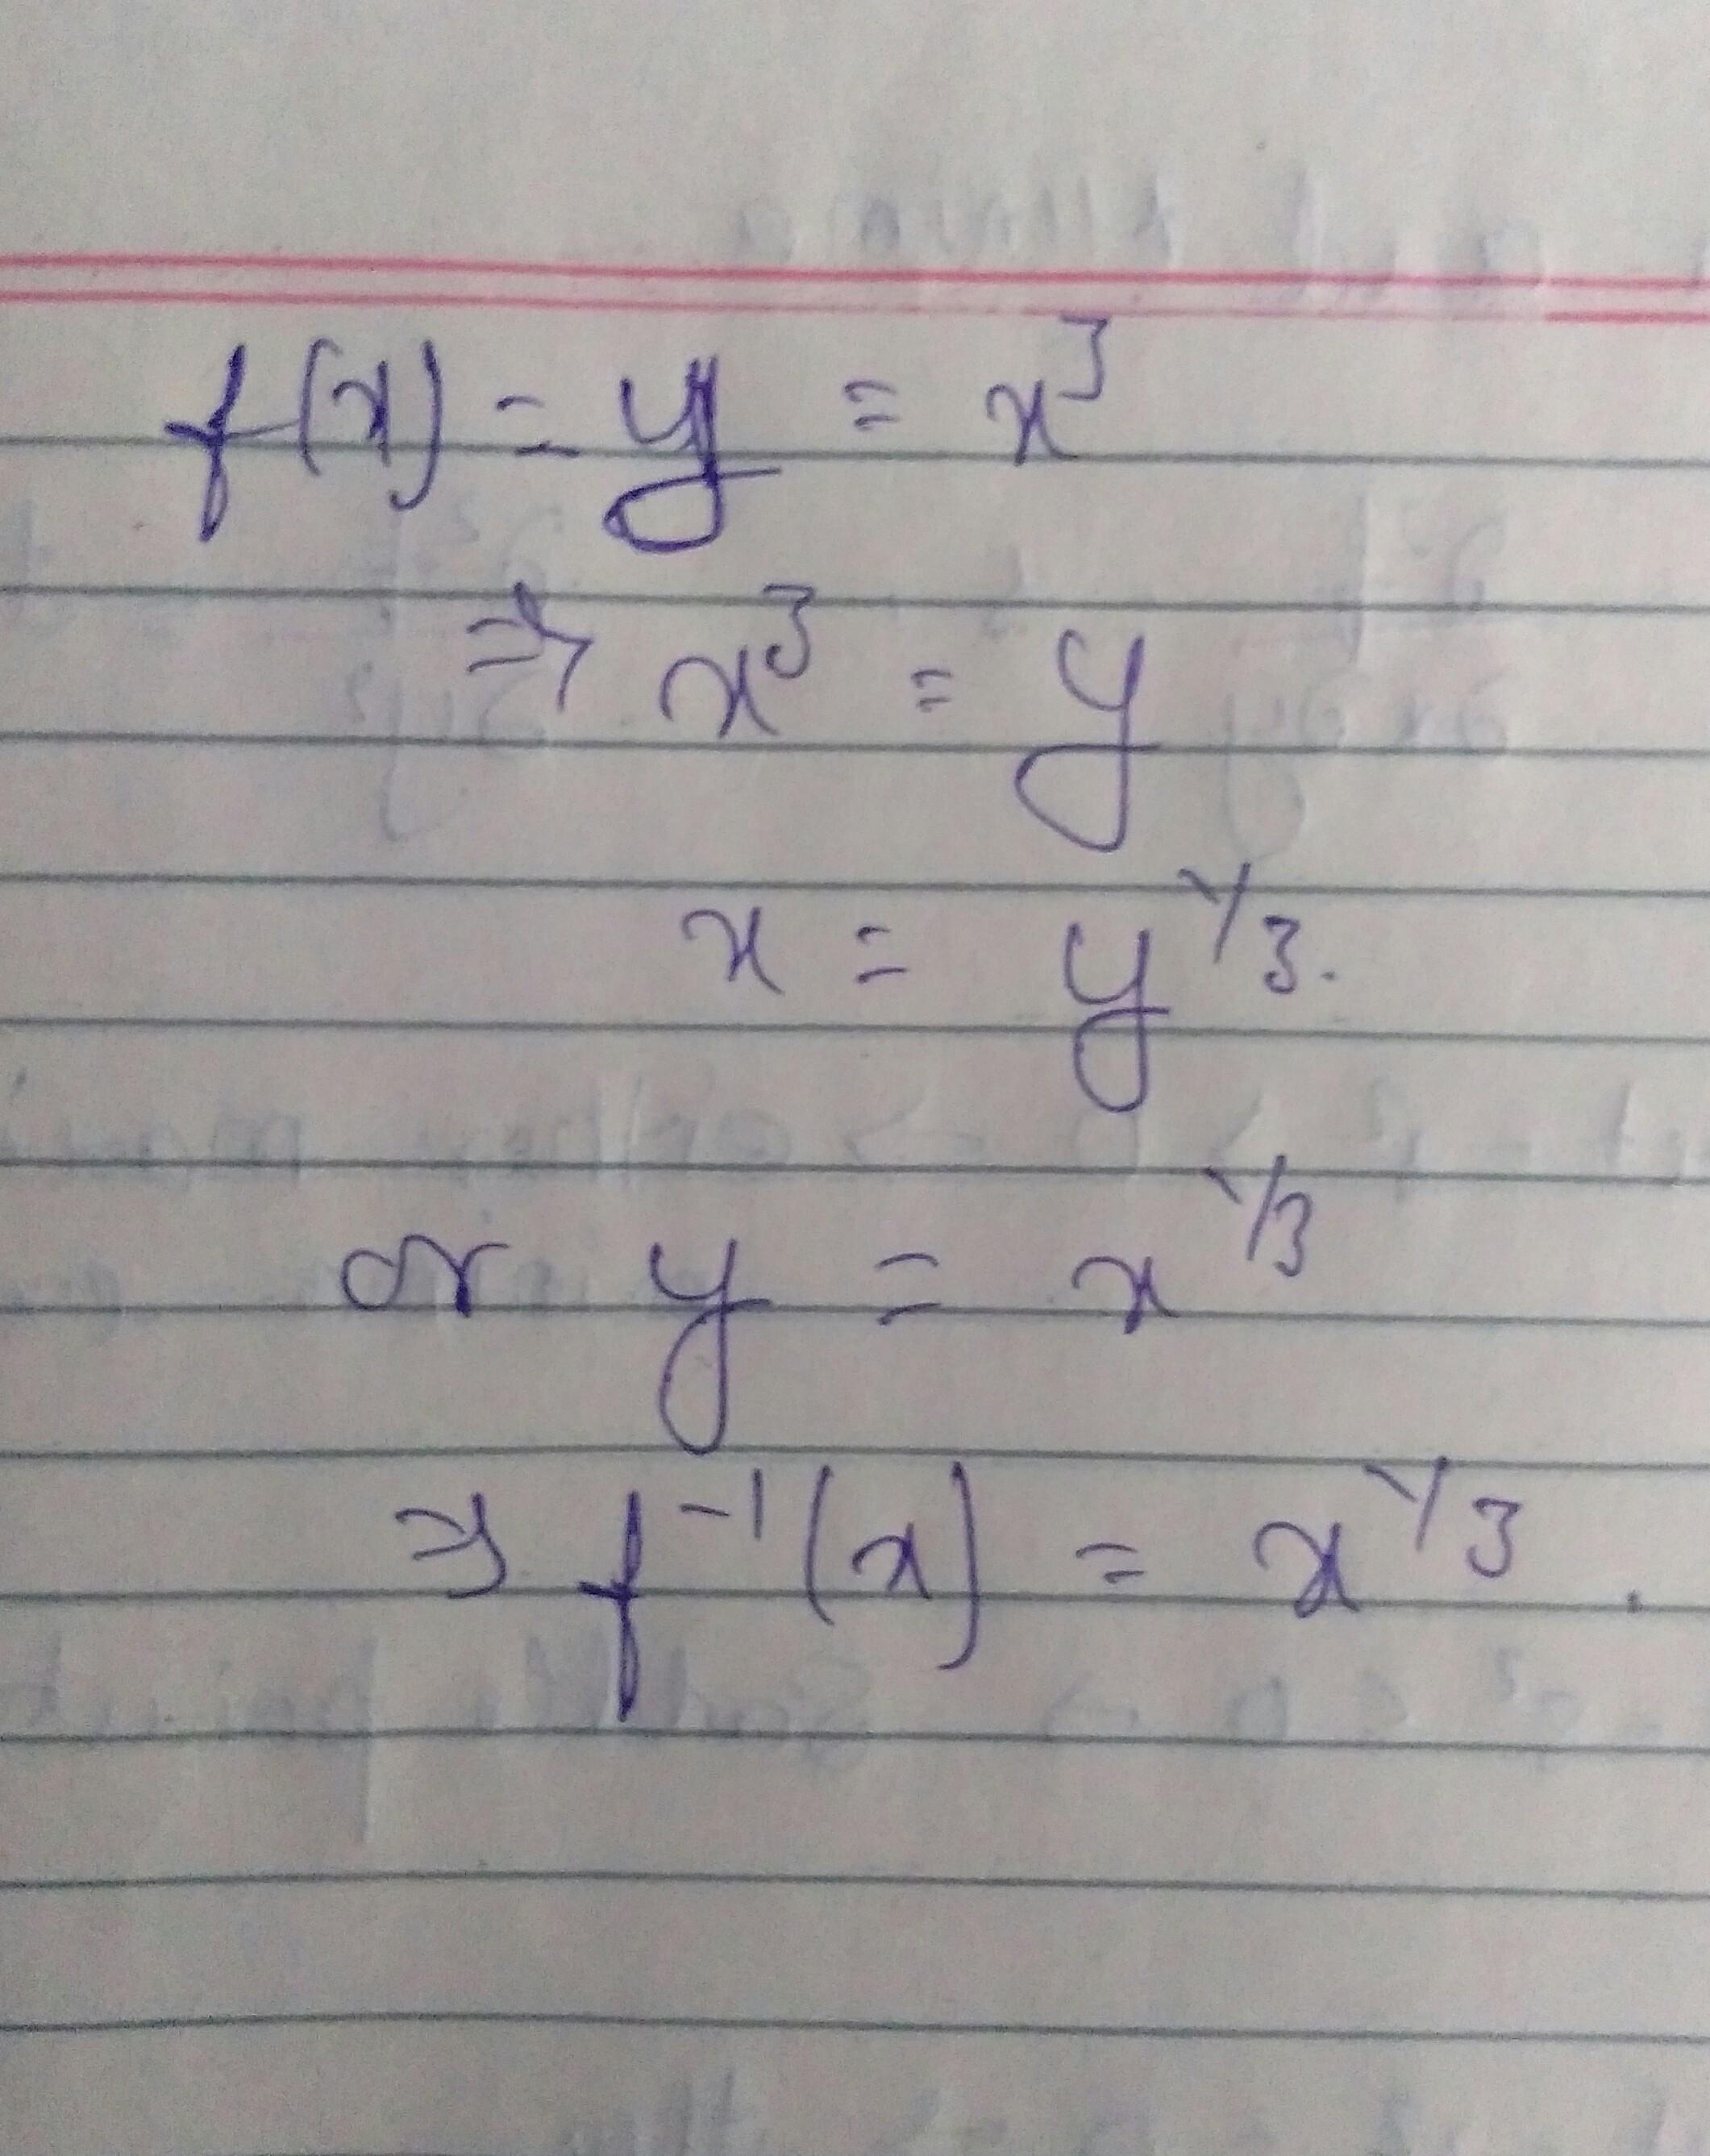 f(x) = y = x³
⇒ x³ = y
x = y^1/3.
or y = x^1/3
⇒ f⁻¹(x) = x^1/3.